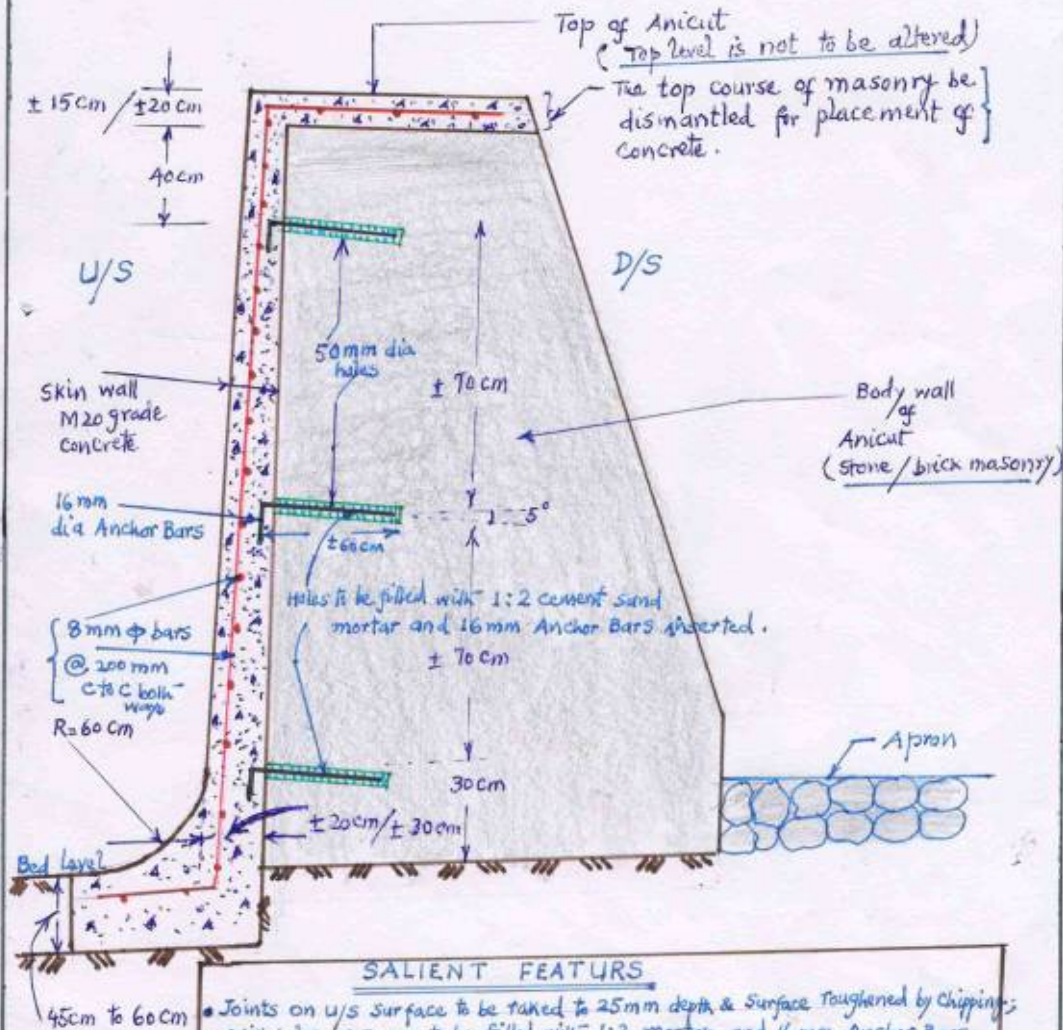 Top of Anicut
( Top level is not to be altered)
The top course of masonry be
dismantled for placement of
Concrete.
± 15cm / ±20cm
40cm
U/S
D/S
50mm dia
holes
± 70cm
Skin wall
M20 grade
Concrete
Body wall
of
Anicut
( Stone / brick masonry)
16mm
dia Anchor Bars
5°
±60cm
Holes to be filled with 1:2 cement sand
mortar and 16mm Anchor Bars inserted.
± 70cm
8mm ф bars
@ 200mm
C to C both
ways
R=60cm
Apron
30cm
±20cm/±30cm
Bed Level
45cm to 60cm
SALIENT FEATURS
• Joints on u/s surface to be raked to 25mm depth & Surface roughened by Chipping;
to be filled with 1:2 mortar and 16mm Anchor